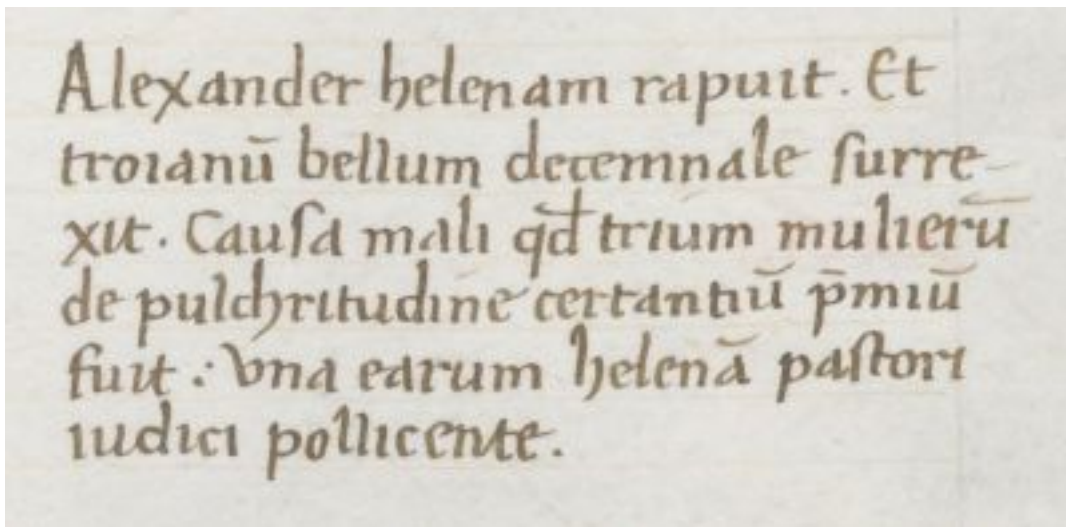 Alexander helenam rapuit. Et
troianū bellum decemnale surre-
xit. Causa mali qd̄ trium mulierū
de pulchritudine certantiū p̄miū
fuit: Vna earum helenā pastori
iudici pollicente.